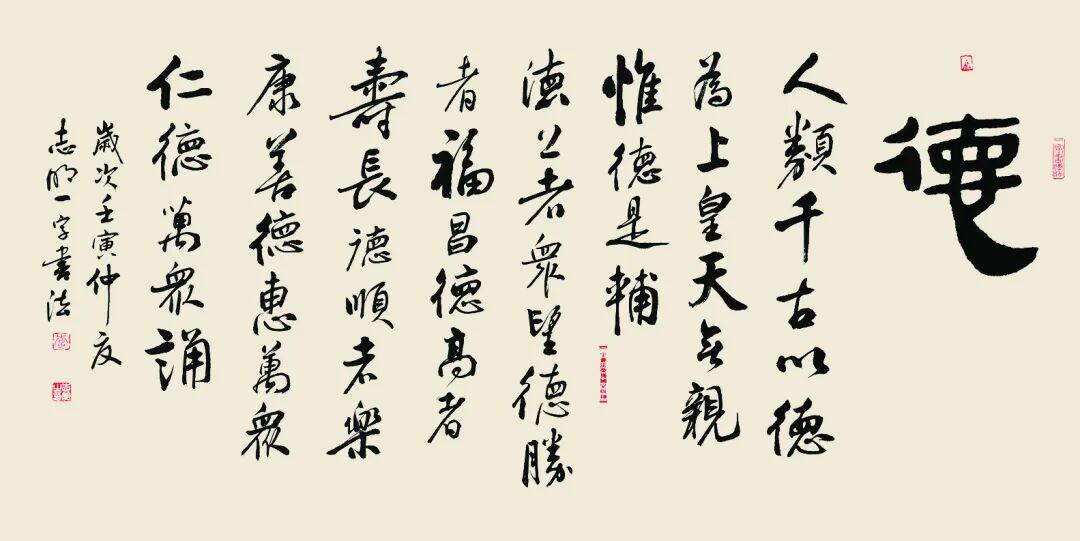 德
人類千古以德
為上皇天無親
惟德是輔
德公者衆望德勝
者福昌德高者
壽長德順者樂
康善德惠萬衆
仁德萬衆誦
歲次壬寅仲夏
志明一字書法